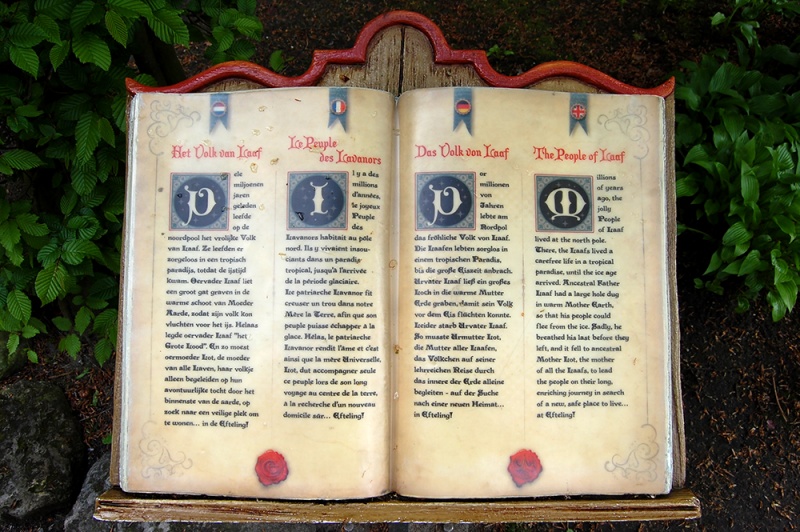 Het Volk van Laaf
Vele
miljoenen
jaren
geleden
leefde
op de
noordpool het vrolijke Volk
van Laaf. Ze leefden er
zorgeloos in een tropisch
paradijs, totdat de ijstijd
kwam. Oervader Laaf liet
een groot gat graven in de
warme schoot van Moeder
Aarde, zodat zijn volk kon
vluchten voor het ijs. Helaas
legde oervader Laaf "het
Grote Lood". En zo moest
oermoeder Lot, de moeder
van alle Laven, haar volkje
alleen begeleiden op hun
avontuurlijke tocht door het
binnenste van de aarde, op
zoek naar een veilige plek om
te wonen... in de Efteling!
Le Peuple
des Lavanors
Il y a des
millions
d'années,
le joyeux
Peuple
des
Lavanors habitait au pôle
nord. Ils y vivaient insou-
ciants dans un paradis
tropical, jusqu'à l'arrivée
de la période glaciaire.
Le patriarche Lavanor fit
creuser un trou dans notre
Mère la Terre, afin que son
peuple puisse échapper à la
glace. Hélas, le patriarche
Lavanor rendit l'âme et c'est
ainsi que la mère Universelle,
Lot, dut accompagner seule
ce peuple lors de son long
voyage au centre de la terre,
a la recherche d'un nouveau
domicile sûr... Efteling!
Das Volk von Laaf
Vor
millionen
von
Jahren
lebte am
Nordpol
das fröhliche Volk von Laaf.
Die Laafen lebten sorglos in
einem tropischen Paradis,
bis die große Eiszeit anbrach.
Urvater Laaf ließ ein großes
Loch in die warme Mutter
Erde graben, damit sein Volk
vor dem Eis flüchten konnte.
Leider starb Urvater Laaf.
So musste Urmutter Lot,
die Mutter aller Laafen,
das Völkchen auf seiner
lehrreichen Reise durch
das innere der Erde alleine
begleiten - auf der Suche
nach einer neuen Heimat...
in Efteling!
The People of Laaf
Millions
of years
ago, the
jolly
People
of Laaf
lived at the north pole.
There, the Laafs lived a
carefree life in a tropical
paradise, until the ice age
arrived. Ancestral Father
Laaf had a large hole dug
in warm Mother Earth,
so that his people could
flee from the ice. Sadly, he
breathed his last before they
left, and it fell to ancestral
Mother Lot, the mother
of all the Laafs, to lead
the people on their long,
enriching journey in search
of a new, safe place to live...
at Efteling!